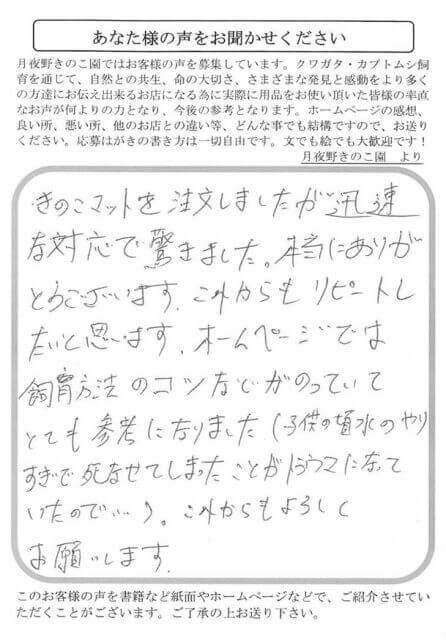 あなた様の声をお聞かせください
月夜野きのこ園ではお客様の声を募集しています。クワガタ・カブトムシ飼
育を通じて、自然との共生、命の大切さ、さまざまな発見と感動をより多く
の方達にお伝え出来るお店になる為に実際に用品をお使い頂いた皆様の率直
なお声が何よりの力となり、今後の参考となります。ホームページの感想、
良い所、悪い所、他のお店との違い等、どんな事でも結構ですので、お送り
ください。応募はがきの書き方は一切自由です。文でも絵でも大歓迎です！
月夜野きのこ園　より
きのこマットを注文しましたが迅速
な対応で驚きました。本当にありが
とうございます。これからもリピートし
たいと思います。ホームページでは
飼育方法のコツなどがのっていて
とても参考になりました(子供の頃水のやり
すぎで死なせてしまったことがトラウマになって
いたので…)。これからもよろしく
お願いします。
このお客様の声を書籍など紙面やホームページなどで、ご紹介させてい
ただくことがございます。ご了承の上お送り下さい。